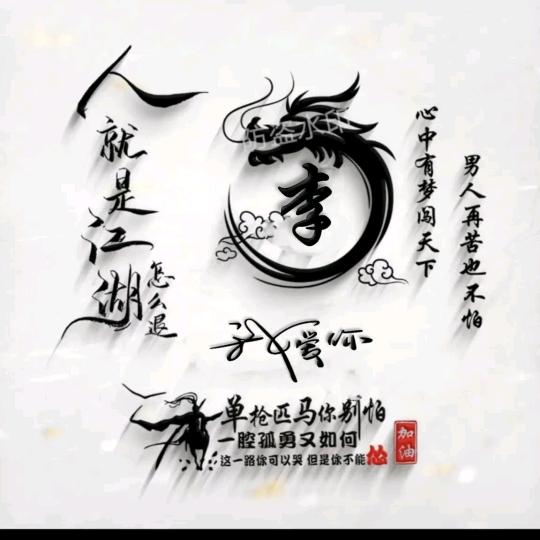 人
就是江湖
怎么退
防盗水印
李
心中有梦闯天下
男人再苦也不怕
我爱你
单枪匹马你别怕
一腔孤勇又如何
这一路你可以哭 但是你不能怂
加油